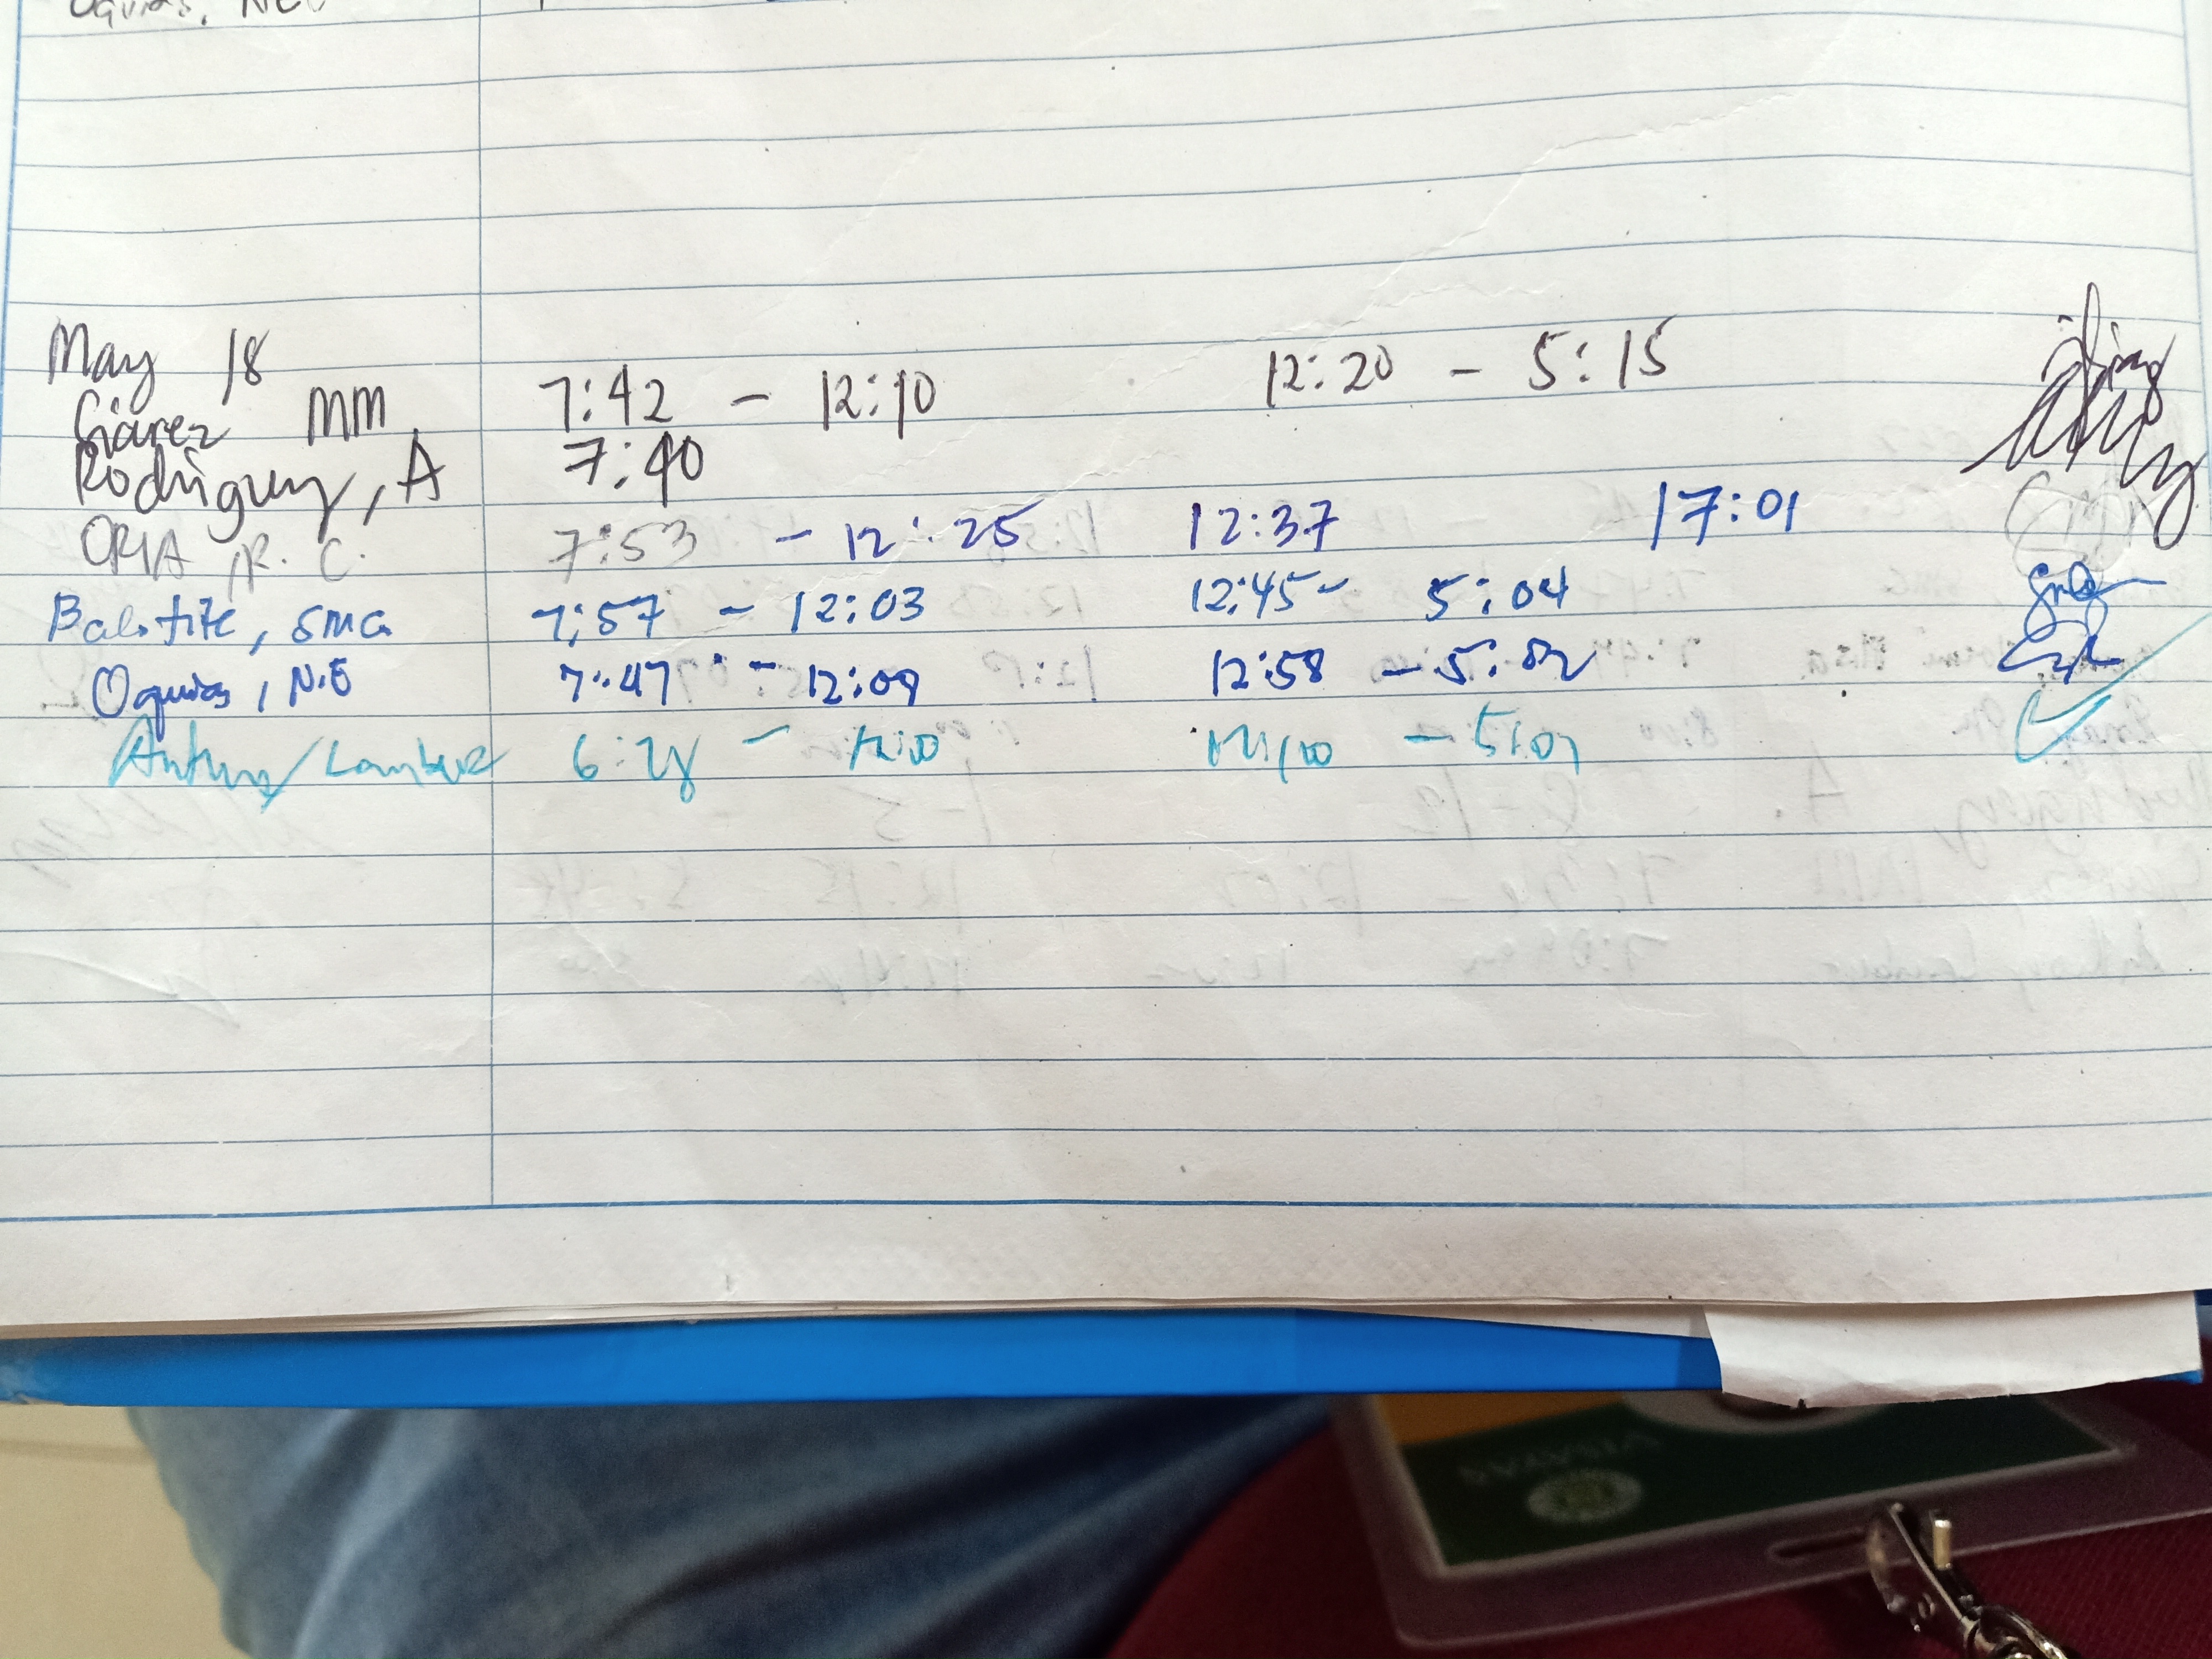 May 18
Giárez MM 7:42 - 12:10 12:20 - 5:15
Rodriguez, A 7:40
ORIA, R. C. 7:53 - 12:25 12:37 17:01
Balotite, SMG 7:57 - 12:03 12:45 - 5:04
Oquias, N.E 7:47 - 12:09 12:58 - 5:02
6:28 - - 5:07
VISAYAN